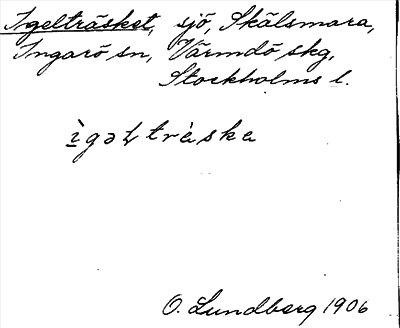 Igelträsket, sjö, Skälsmara,
Ingarö sn, Värmdö skg,
Stockholms l.
ìgəɫtràska
O. Lundberg 1906